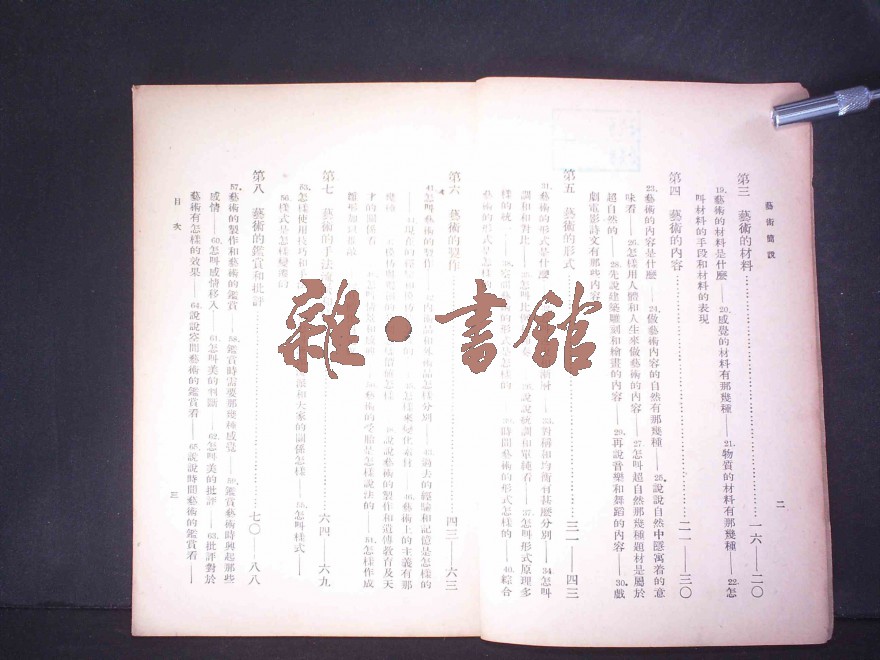 藝術簡說
二
第三 藝術的材料……一六——二〇
19.藝術的材料是什麼——20.感覺的材料有那幾種——21.物質的材料有那幾種——22.怎
叫材料的手段和材料的表現
第四 藝術的內容……二一——三〇
23.藝術的內容是什麼——24.做藝術內容的自然有那幾種——25.說說自然中隱寓着的意
味看——26.怎樣用人體和人生來做藝術的內容——27.怎叫超自然那幾種題材是屬於
超自然的——28.先說建築雕刻和繪畫的內容——29.再說音樂和舞蹈的內容——30.戲
劇電影詩文有那些內容
第五 藝術的形式……三一——四三
31.藝術的形式是什麼
33.對稱和均衡有甚麼分別——34.怎叫
調和和對比
說說統調和單純看——37.怎叫形式原理多
樣的統一
39.時間藝術的形式怎樣的——40.綜合
藝術的形式是怎樣
第六 藝術的製作……四三——六三
41.怎叫藝術的製作
內作品和外作品怎樣分別——43.過去的經驗和記憶是怎樣的
怎樣來變化素材——46.藝術上的主義有那
幾種
說說藝術的製作和遺傳教育及天
才的關係看
藝術的受胎是怎樣說法的——51.怎樣作成
雛形如何推敲
第七 藝術的手法
六四——六九
53.怎樣使用技巧和手
派和大家的關係怎樣
怎叫樣式——
56.樣式是怎樣變遷的
第八 藝術的鑑賞和批評……七〇——八八
57.藝術的製作和藝術的鑑賞——58.鑑賞時需要那幾種感覺——59.鑑賞藝術時興起那些
感情——60.怎叫感情移入——61.怎叫美的判斷——62.怎叫美的批評——63.批評對於
藝術有怎樣的效果——64.說說空間藝術的鑑賞看——65.說說時間藝術的鑑賞看——
目次
三
雜·書館